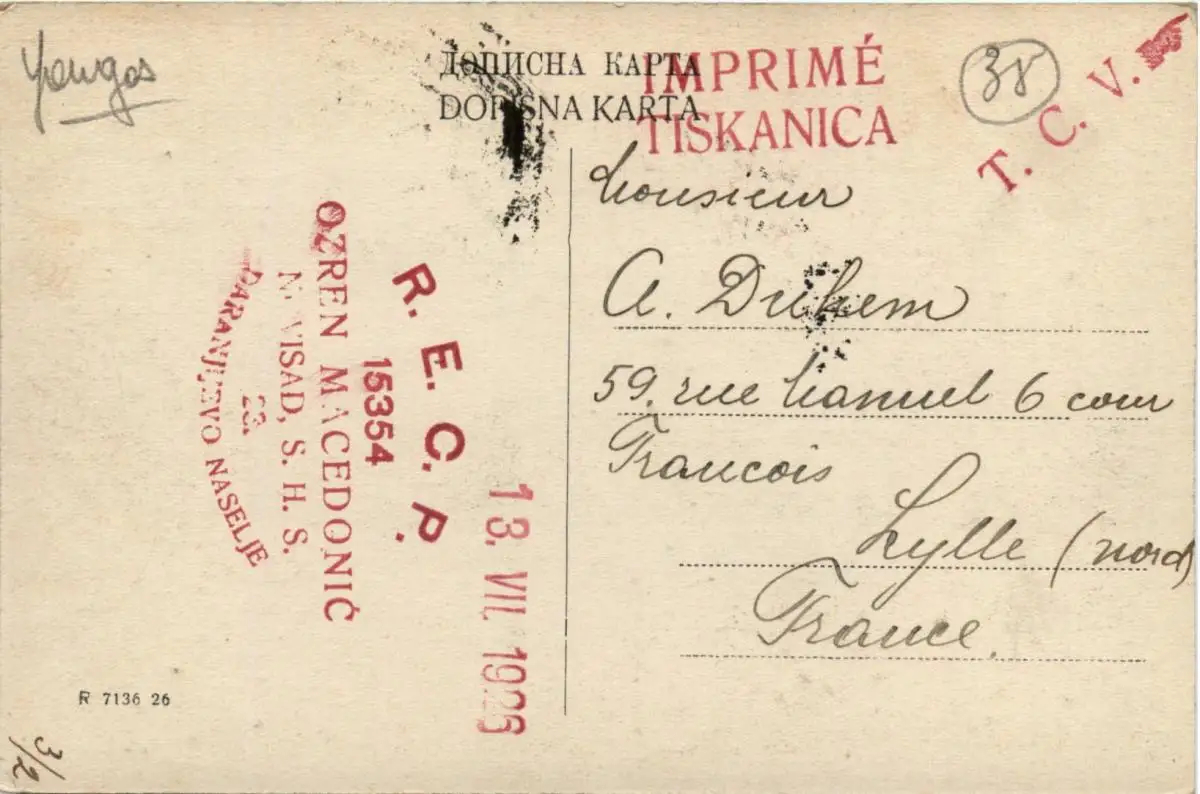 ДОПИСНА КАРТА
DOPISNA KARTA
IMPRIMÉ
TISKANICA
38
T. C. V.
Monsieur
A. Duhem
59, rue Manuel 6 cour
Francois
Lylle (nord)
France.
R. E. C. P.
15354
OZREN MACEDONIĆ
NOVISAD, S. H. S.
23.
DARANJEVO NASELJE
13. VII. 1926
R 7136 26
3/2